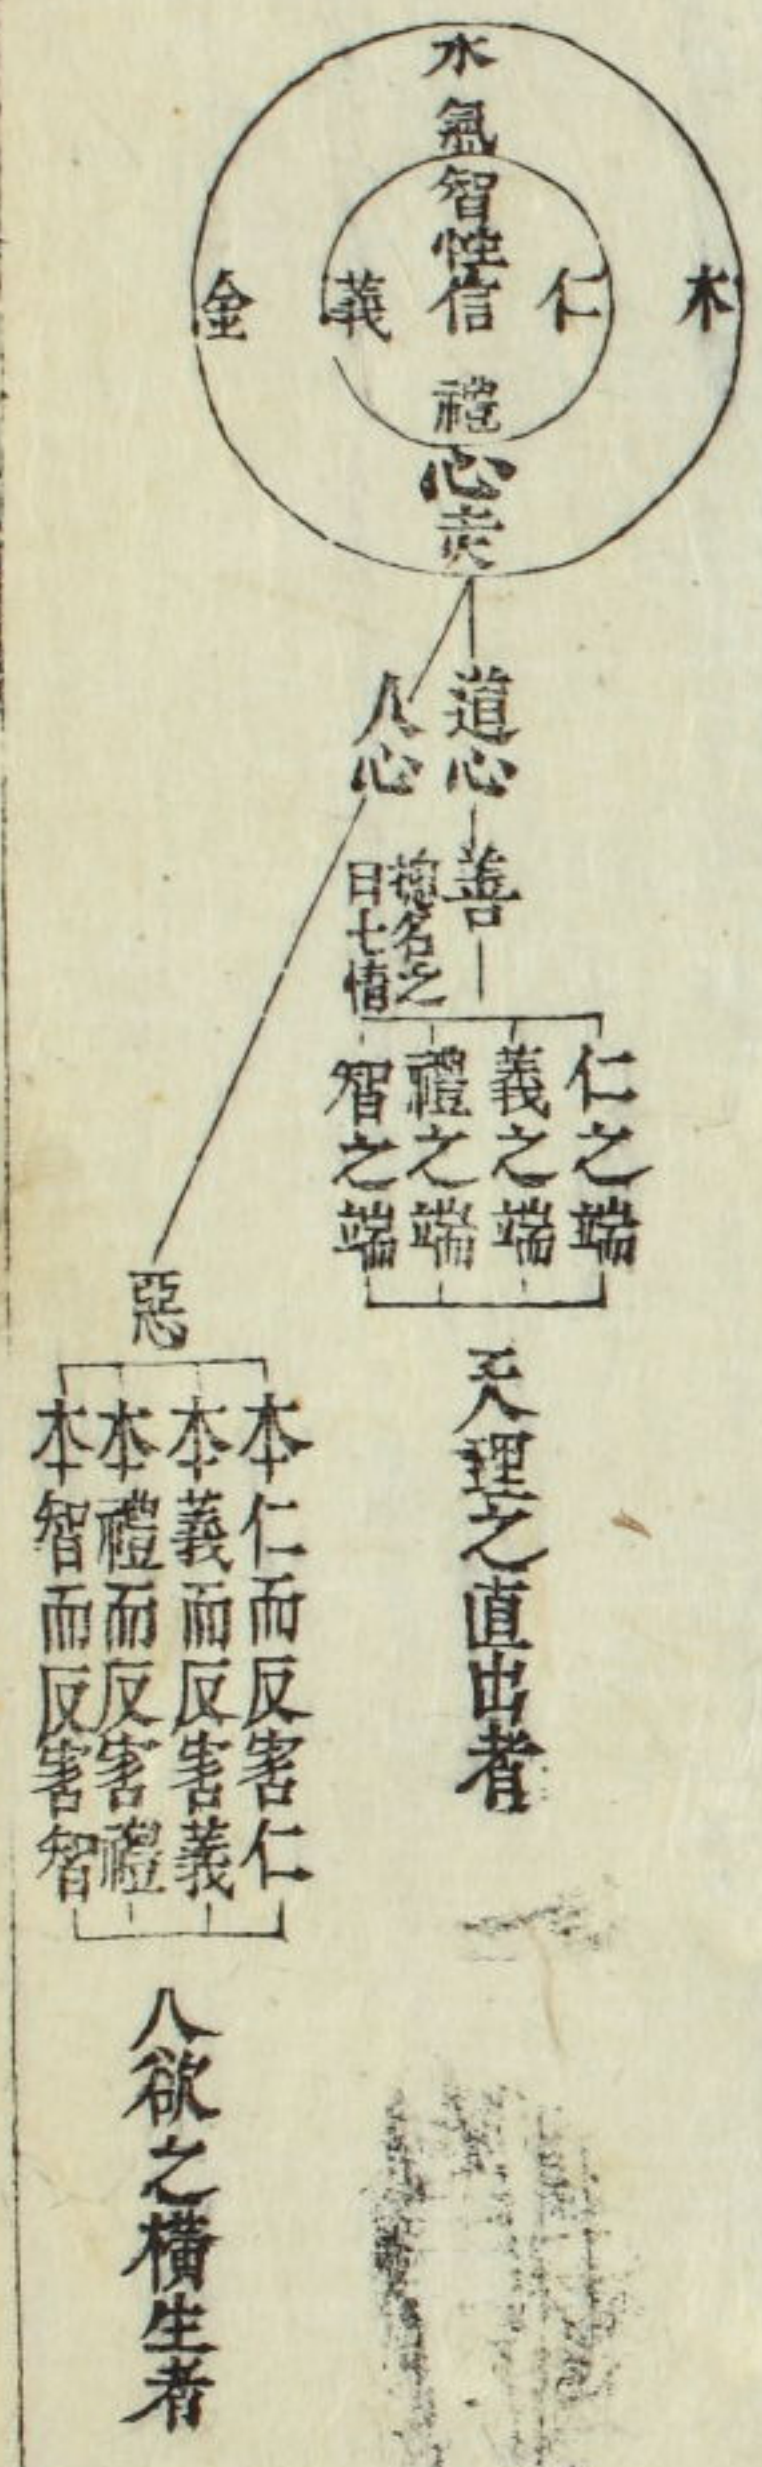 水
氣
智
性
木
仁
信
義
金
禮
心
火
道心
人心
善
摠名之
曰七情
仁之端
義之端
禮之端
智之端
天理之直出者
惡
本仁而反害仁
本義而反害義
本禮而反害禮
本智而反害智
人欲之橫生者